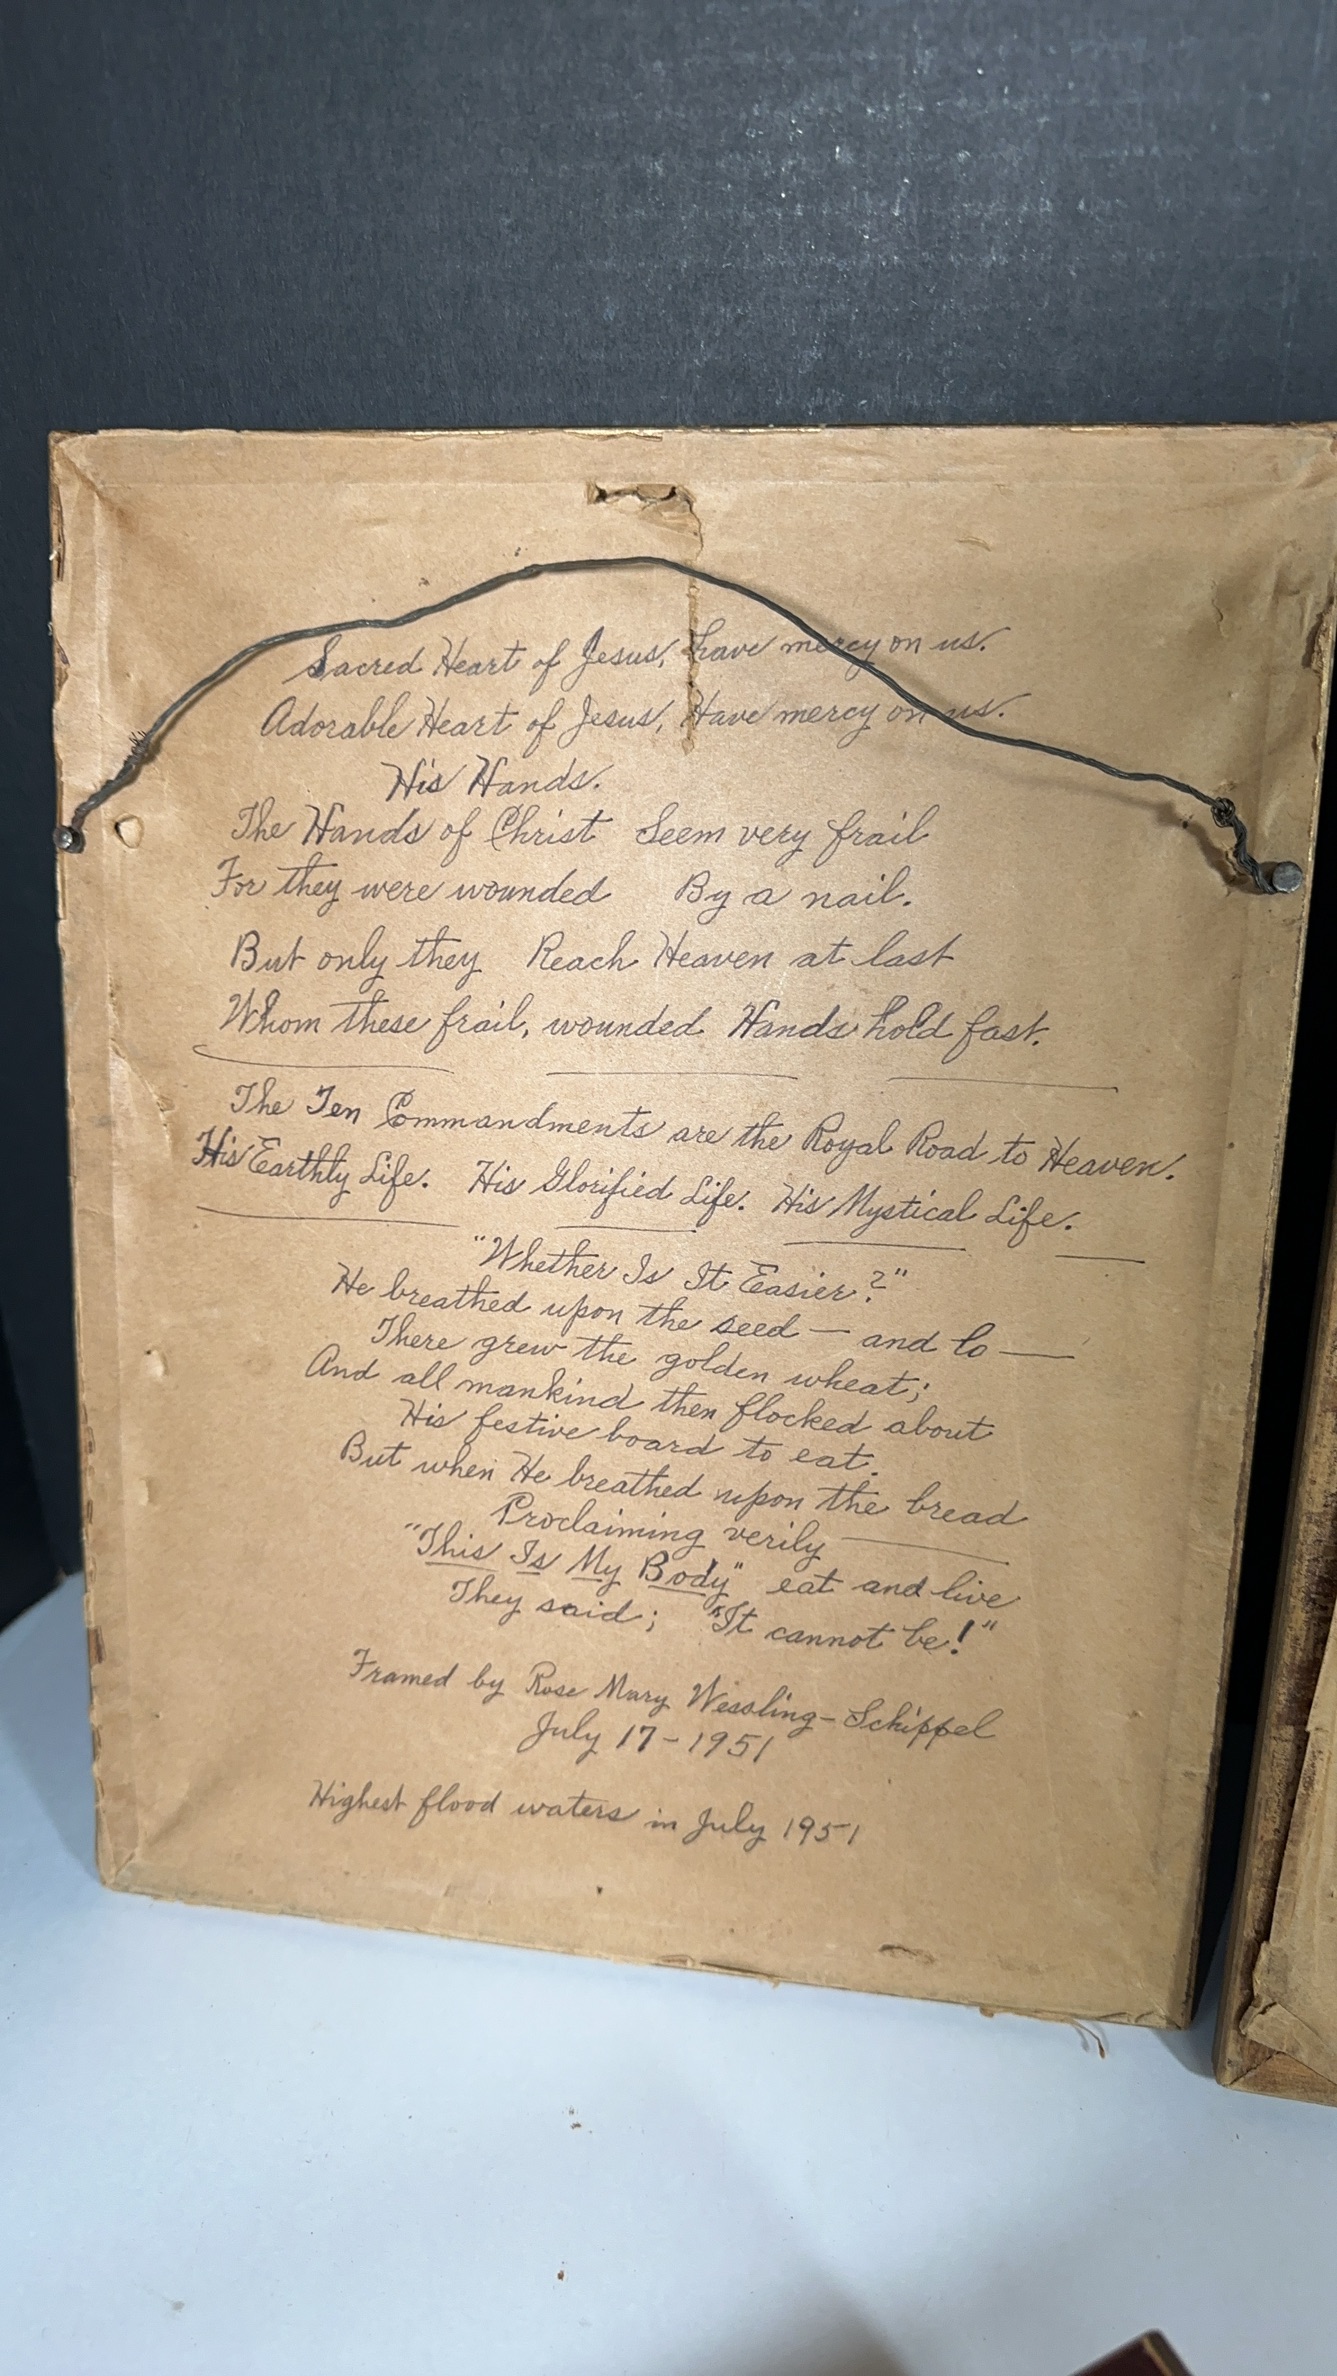 Sacred Heart of Jesus, have mercy on us.
Adorable Heart of Jesus, Have mercy on us.
His Hands.
The Hands of Christ Seem very frail
For they were wounded By a nail.
But only they Reach Heaven at last
Whom these frail, wounded Hands hold fast.
The Ten Commandments are the Royal Road to Heaven.
His Earthly Life. His Glorified Life. His Mystical Life.
"Whether Is It Easier?"
He breathed upon the seed — and lo —
There grew the golden wheat;
And all mankind then flocked about
His festive board to eat.
But when He breathed upon the bread
Proclaiming verily —
"This Is My Body" eat and live
They said; "It cannot be!"
Framed by Rose Mary Wessling-Schippel
July 17-1951
Highest flood waters in July 1951